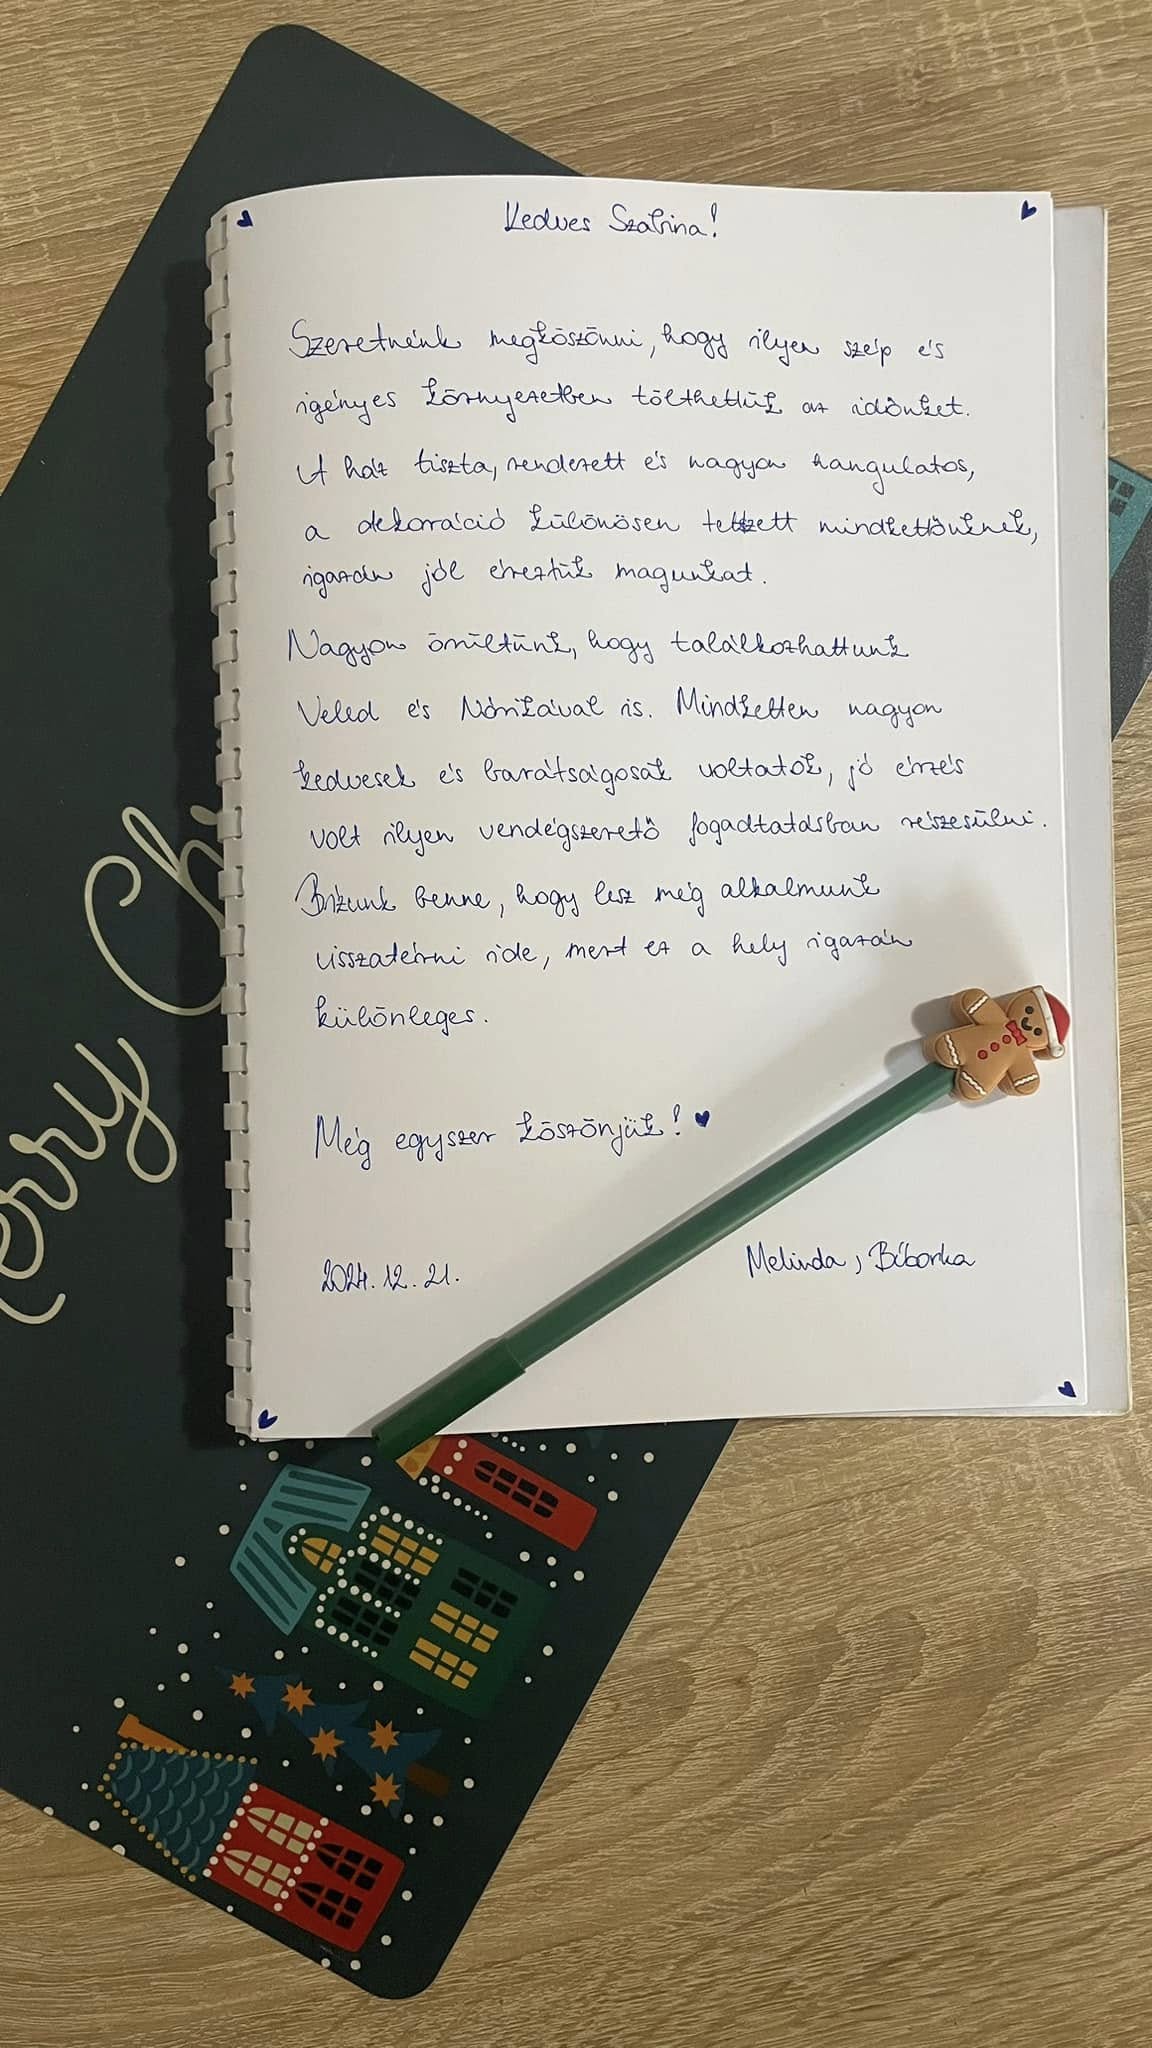 Kedves Szabina!
Szeretnénk megköszönni, hogy ilyen szép és
igényes környezetben tölthettük az időnket.
A ház tiszta, rendezett és nagyon hangulatos,
a dekoráció különösen tetszett mindkettőnknek,
igazán jól éreztük magunkat.
Nagyon örültünk, hogy találkozhattunk
Veled és Nórikával is. Mindketten nagyon
kedvesek és barátságosak voltatok, jó érzés
volt ilyen vendégszerető fogadtatásban részesülni.
Bízunk benne, hogy lesz még alkalmunk
visszatérni ide, mert ez a hely igazán
különleges.
Még egyszer köszönjük!
2024. 12. 21.
Melinda, Bíborka
erry Ch